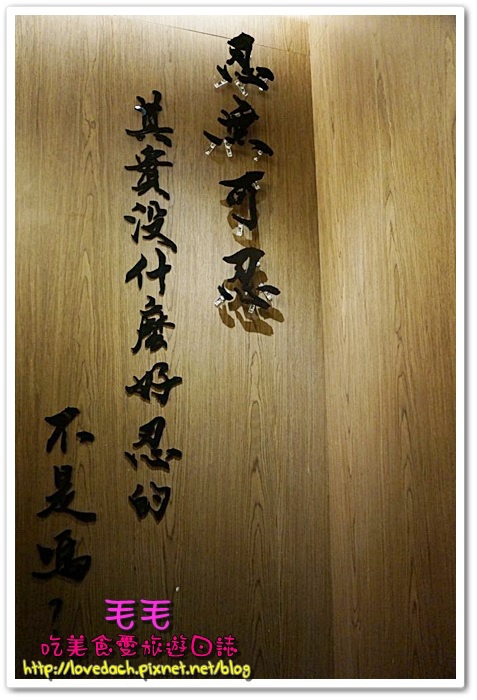 忍無可忍
其實沒什麼好忍的
不是嗎？
毛毛
吃美食愛旅遊日誌
http://lovedach.pixnet.net/blog